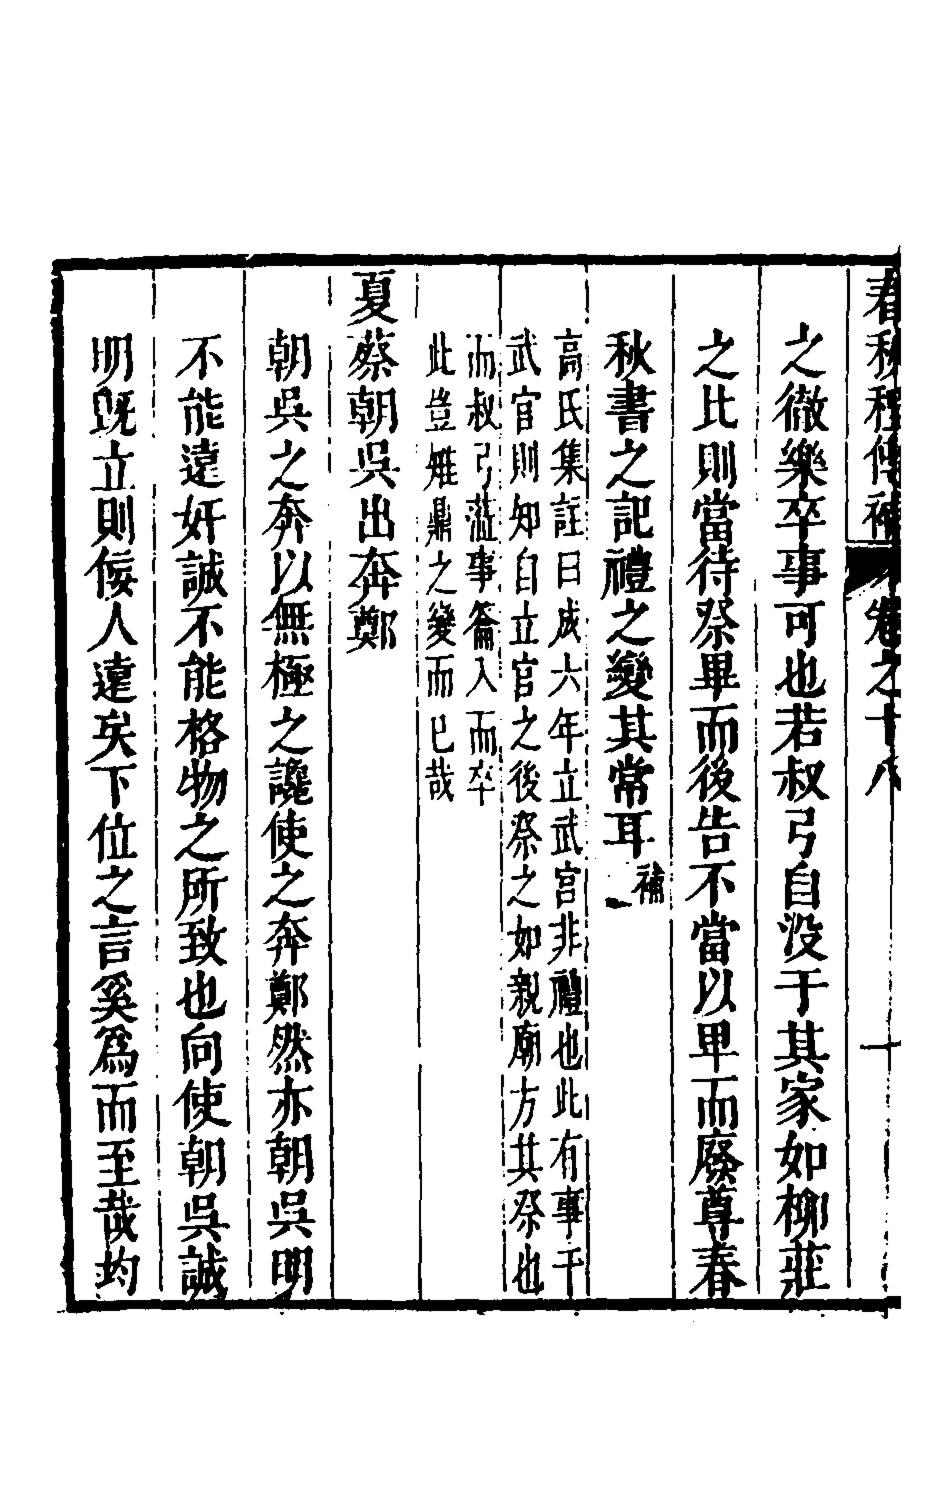 春秋程傳補 卷之十八 一
之徹樂卒事可也若叔弓自没于其家如柳莊
之比則當待祭畢而後告不當以卑而廢尊春
秋書之記禮之變其常耳補
高氏集註曰成六年立武宮非禮也此有事于
武官則知自立官之後祭之如親廟方其祭也
而叔弓涖事籥入而卒
此豈雊鼎之變而已哉
夏蔡朝吳出奔鄭
朝吳之奔以無極之讒使之奔鄭然亦朝吳明
不能遠奸誠不能格物之所致也向使朝吳誠
明既立則佞人遠矣下位之言奚爲而至哉灼